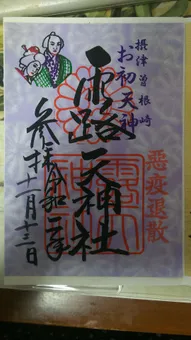 摂津曽根崎
お初天神
露路天神社
悪疫退散
参拝令和二年
十二月十三日